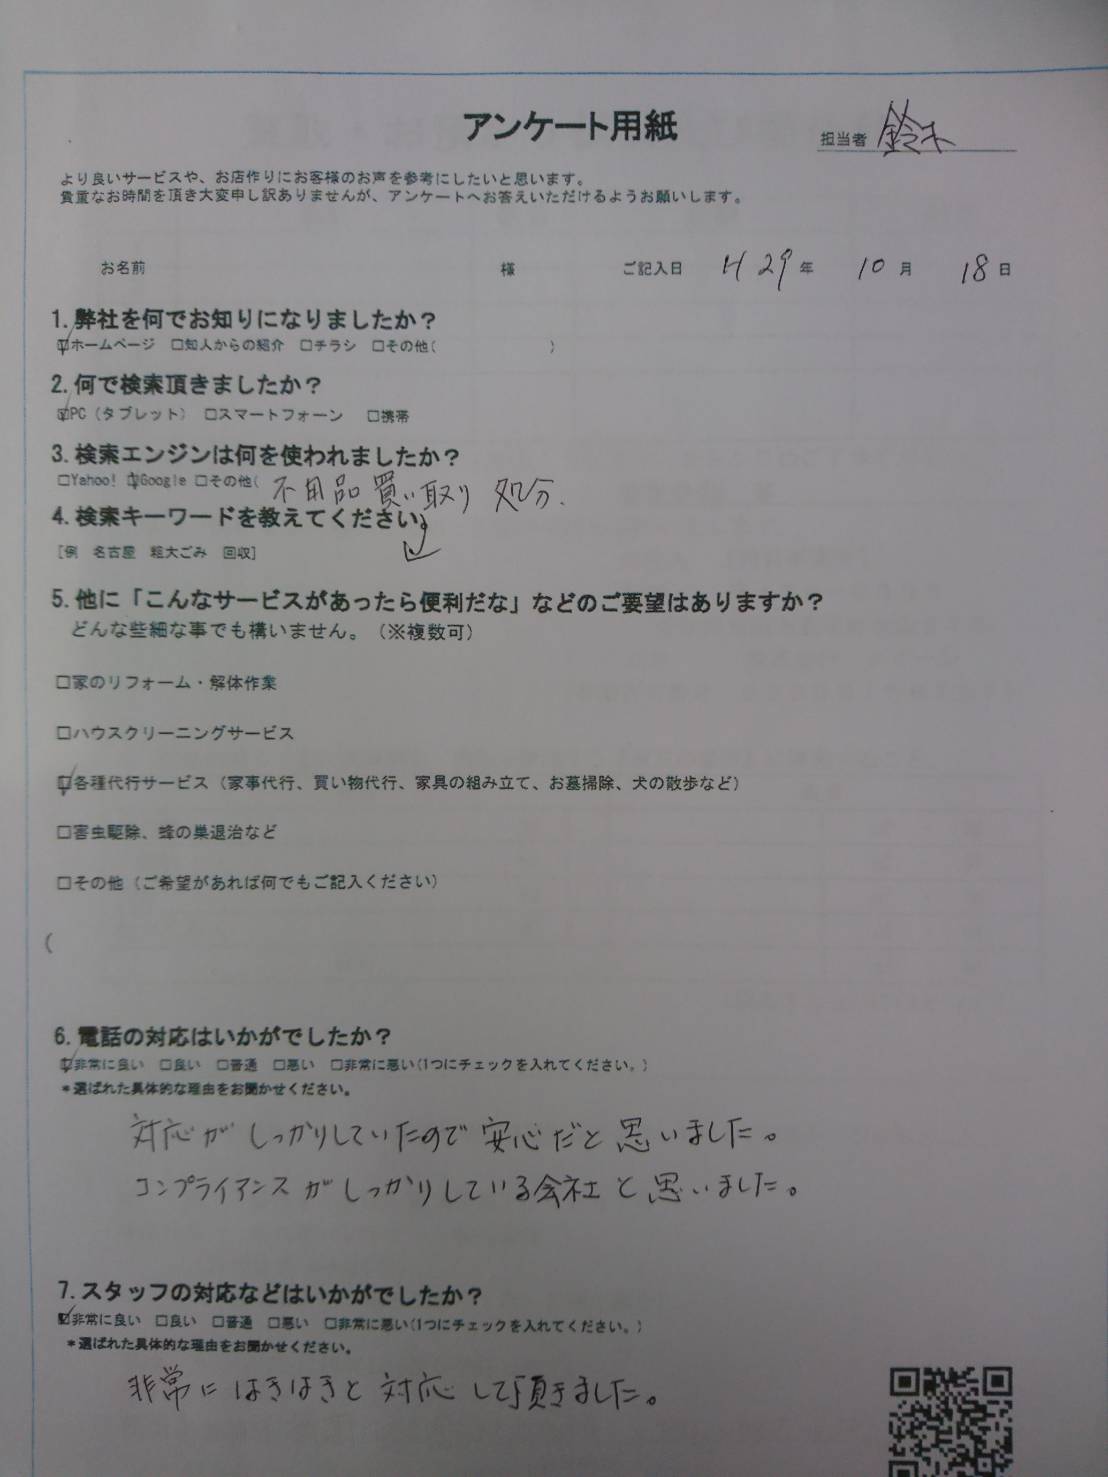 アンケート用紙
担当者 鈴木
より良いサービスや、お店作りにお客様のお声を参考にしたいと思います。
貴重なお時間を頂き大変申し訳ありませんが、アンケートへお答えいただけるようお願いします。
お名前 様 ご記入日 H29年 10月 18日
1. 弊社を何でお知りになりましたか？
☑ホームページ □知人からの紹介 □チラシ □その他( )
2. 何で検索頂きましたか？
☑PC（タブレット） □スマートフォーン □携帯
3. 検索エンジンは何を使われましたか？
□Yahoo! ☑Google □その他(
不用品 買い取り 処分.
4. 検索キーワードを教えてください。
[例 名古屋 粗大ごみ 回収]
5. 他に「こんなサービスがあったら便利だな」などのご要望はありますか？
どんな些細な事でも構いません。（※複数可）
□家のリフォーム・解体作業
□ハウスクリーニングサービス
☑各種代行サービス（家事代行、買い物代行、家具の組み立て、お墓掃除、犬の散歩など）
□害虫駆除、蜂の巣退治など
□その他（ご希望があれば何でもご記入ください）
(
6. 電話の対応はいかがでしたか？
☑非常に良い □良い □普通 □悪い □非常に悪い(1つにチェックを入れてください。)
*選ばれた具体的な理由をお聞かせください。
対応がしっかりしていたので安心だと思いました。
コンプライアンスがしっかりしている会社と思いました。
7. スタッフの対応などはいかがでしたか？
☑非常に良い □良い □普通 □悪い □非常に悪い(1つにチェックを入れてください。)
*選ばれた具体的な理由をお聞かせください。
非常にはきはきと対応して頂きました。